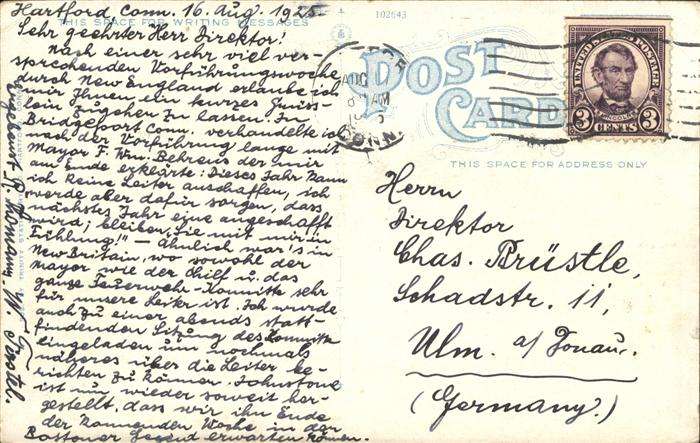 Hartford Conn. 16. Aug. 1925.
THIS SPACE FOR WRITING MESSAGES
102643
Sehr geehrter Herr Direktor!
Nach einer sehr viel ver-
sprechenden Vorführungswoche
durch New England erlaube ich
mir Ihnen ein kurzes Grüss-
lein zugehen zu lassen. In
Bridgeport Conn. verhandelte ich
nach der Vorführung lange mit
Mayor F. Wm. Behrens der mir
am Ende erklärte: Dieses Jahr kann
ich keine Leiter anschaffen, ich
werde aber dafür sorgen, dass
nächstes Jahr eine angeschafft
wird; bleiben Sie mit mir in
Fühlung!" — Ähnlich war's in
New Britain, wo sowohl der
Mayor wie der Chief u. das
ganze Feuerwehr-Komitte sehr
für unsere Leiter ist. Ich wurde
auch zu einer abends statt-
findenden Sitzung des Komitte
eingeladen um nochmals
näheres über die Leiter be-
richten zu können. Johnstone
ist nun wieder soweit her-
gestellt, dass wir ihn Ende
der kommenden Woche in der
Bostoner Gegend erwarten können.
POST
CARD
THIS SPACE FOR ADDRESS ONLY
AUG
AM
CONN.
UNITED STATES POSTAGE
LINCOLN
3 CENTS 3
Herrn
Direktor
Chas. Brüstle,
Schadstr. 11,
Ulm. a/Donau.
(Germany.)